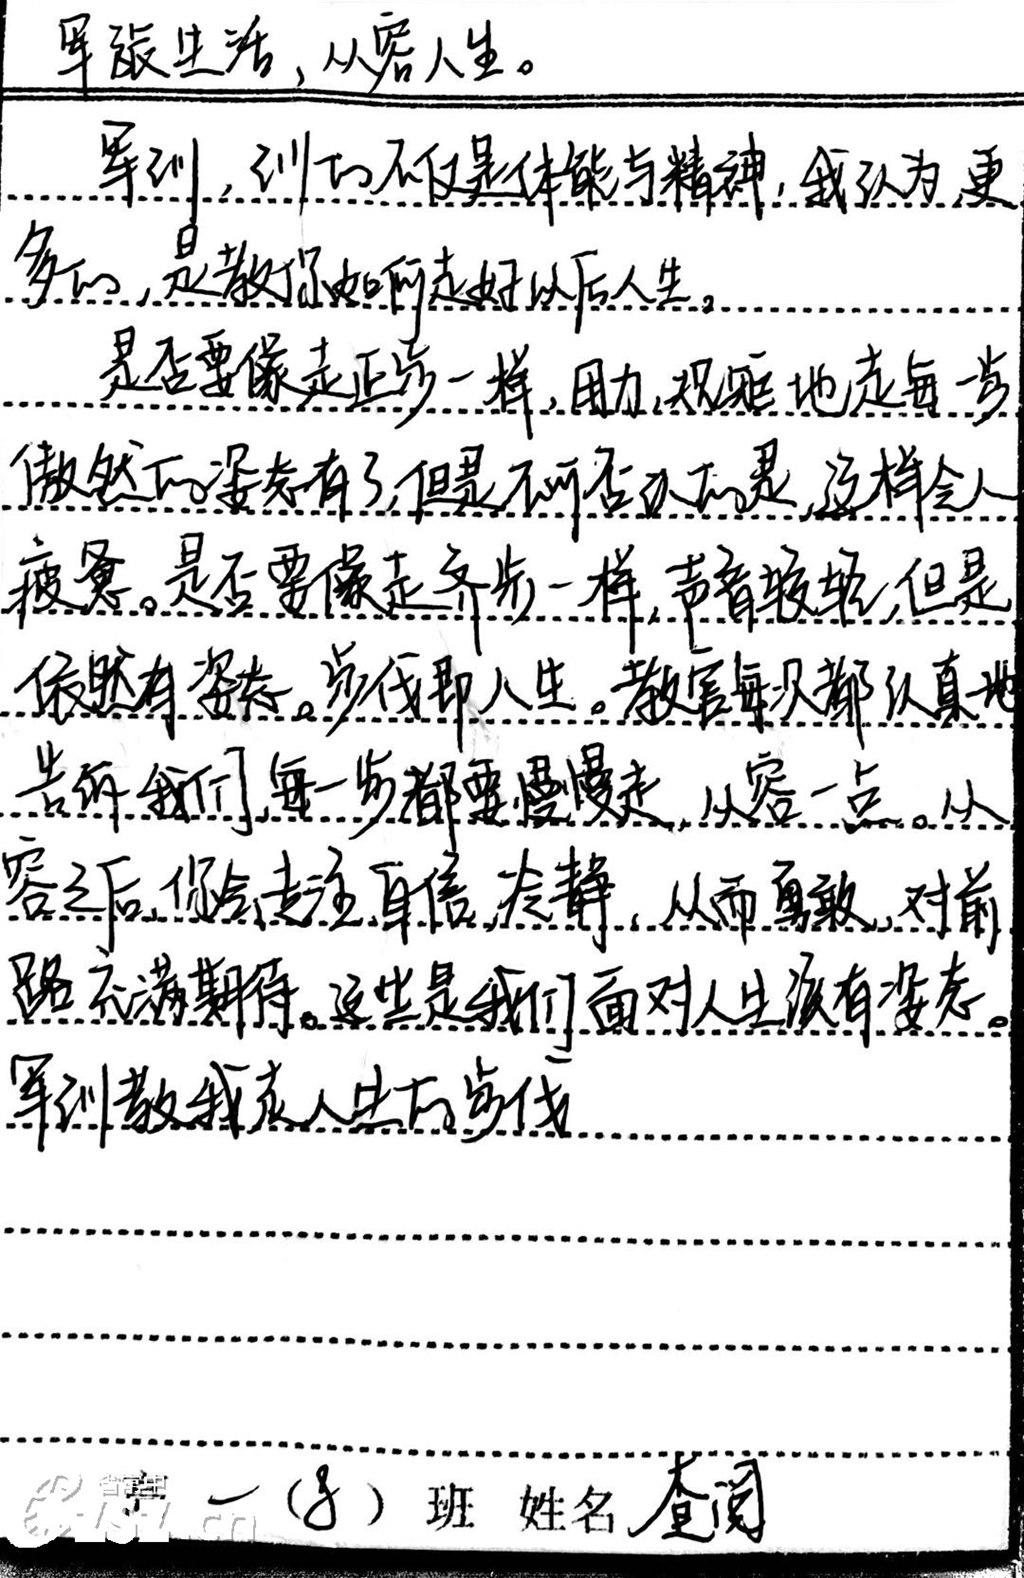 军旅生活，从容人生。
军训，训的不仅是体能与精神，我认为，更
多的，是教你如何走好以后人生。
是否要像走正步一样，用力，规矩地走每一步
傲然的姿态有了，但是不可否认的是，这样会人
疲惫。是否要像走齐步一样，声音较轻，但是
依然有姿态。步伐即人生。教官每次都认真地
告诉我们，每一步都要慢慢走，从容一点。从
容之后，你会专注，自信，冷静，从而勇敢，对前
路充满期待。这些是我们面对人生该有姿态。
军训教我走人生的步伐
高一（8）班 姓名 查阅
省常中